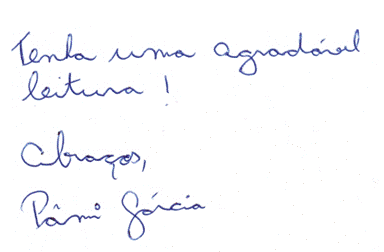 Tenha uma agradável
leitura!
Abraços,
Pâmi Garcia